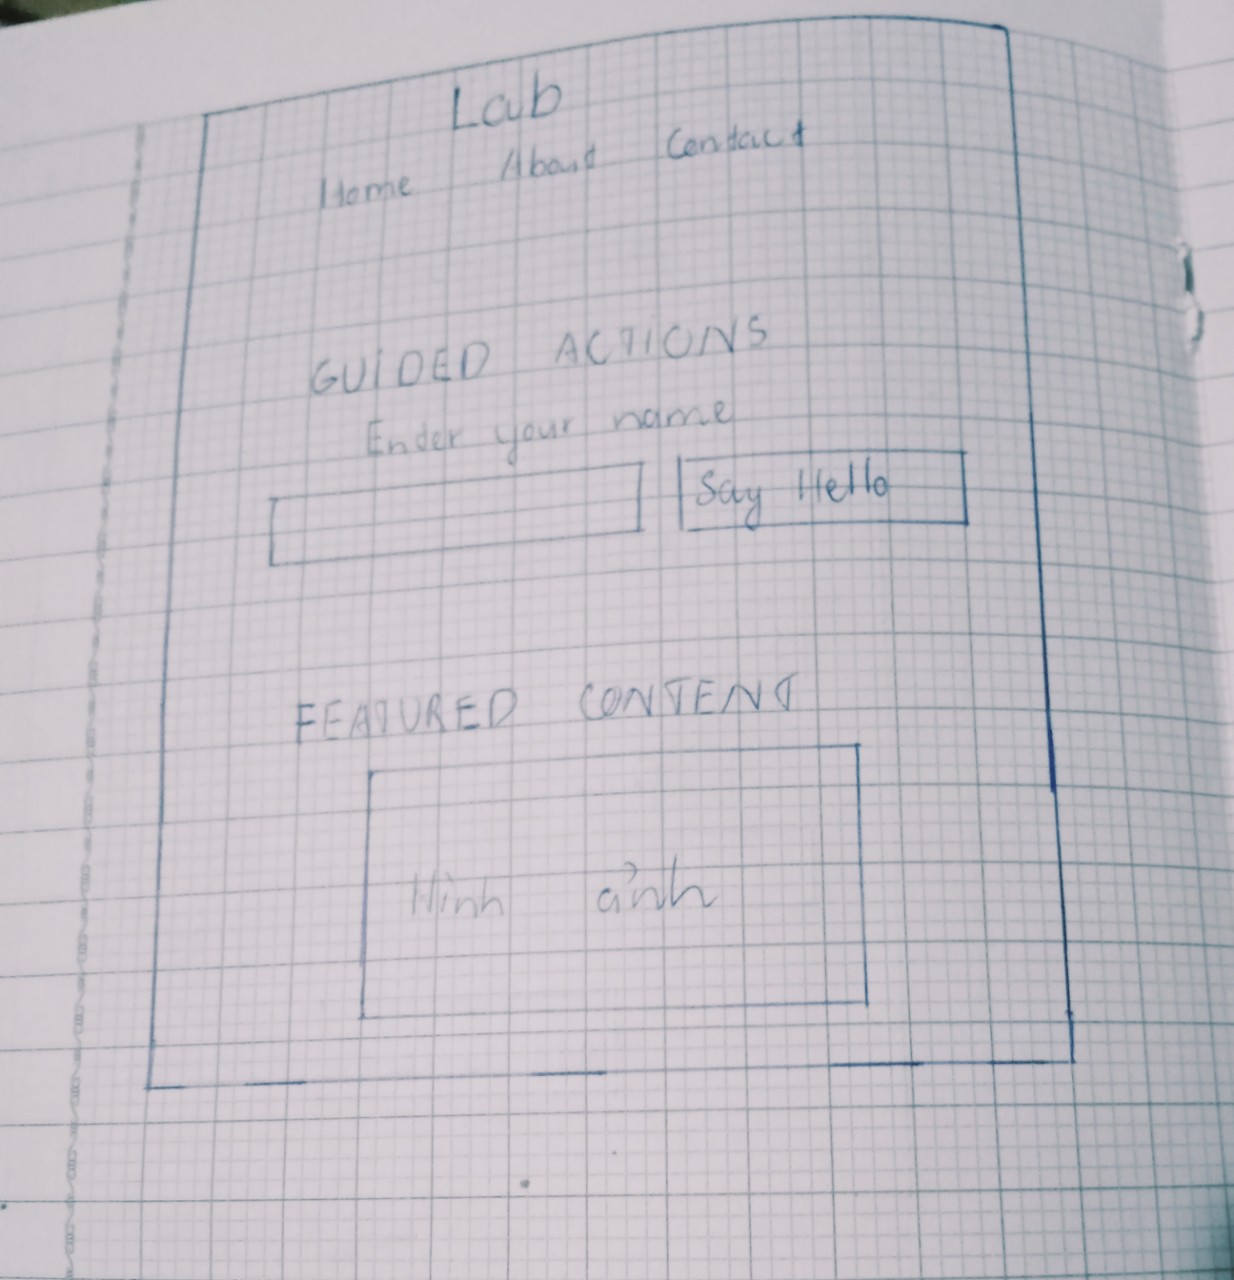 Lab
Home About Contact
GUIDED ACTIONS
Enter your name
Say Hello
FEATURED CONTENT
Hình ảnh